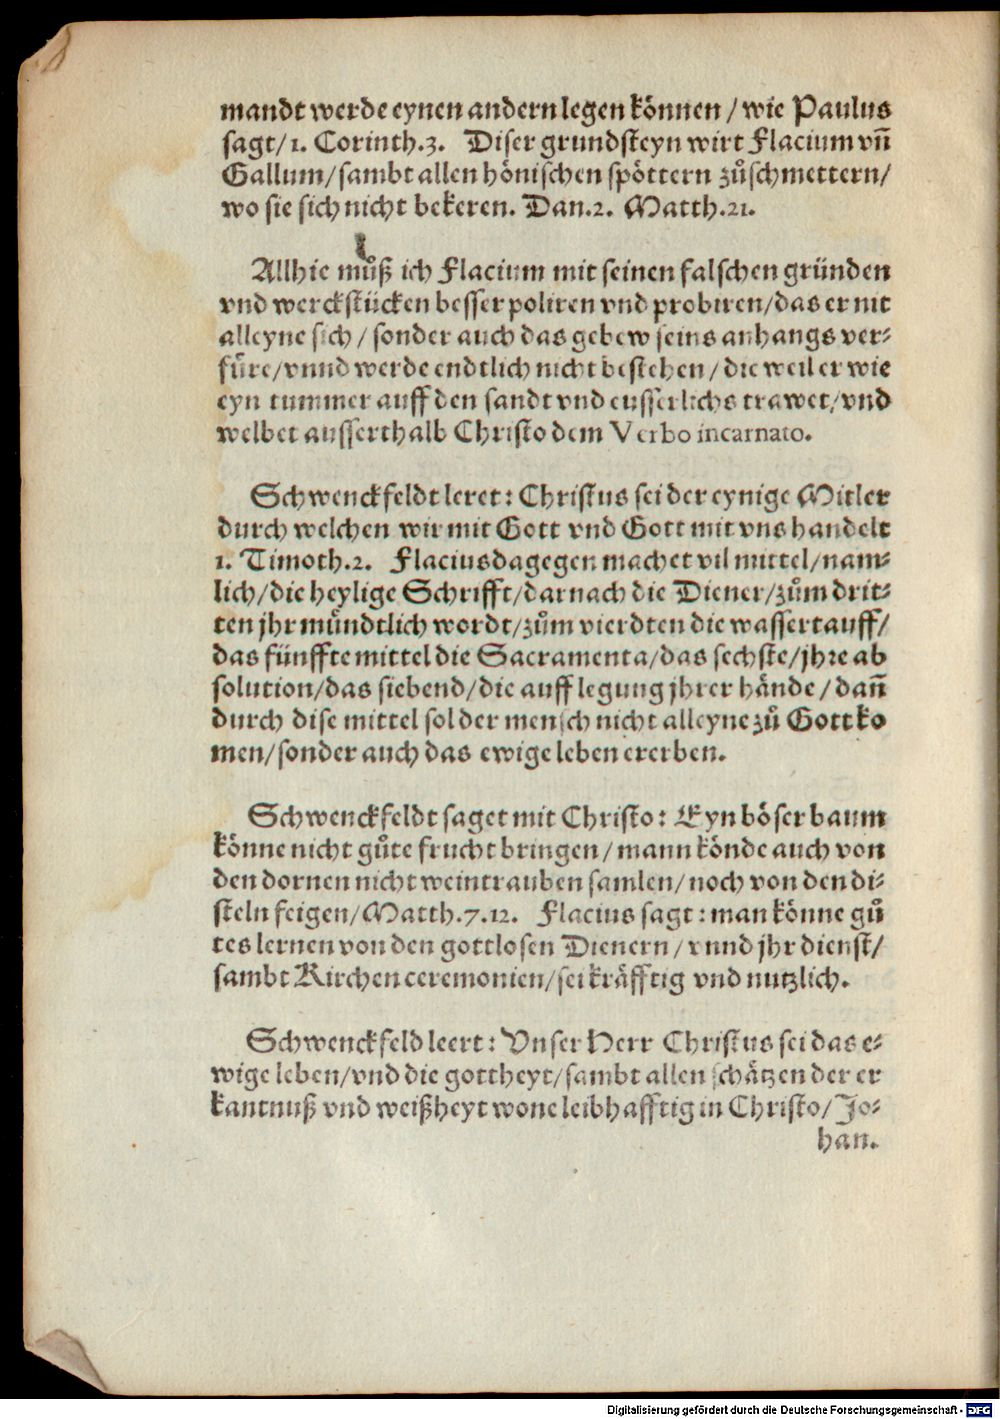 mandt werde eynen andern legen können / wie Paulus
sagt / 1. Corinth.3. Diser grundsteyn wirt Flacium vñ
Gallum / sambt allen hönischen spöttern zůschmettern /
wo sie sich nicht bekeren. Dan.2. Matth.21.
Allhie můß ich Flacium mit seinen falschen gründen
vnd werckstücken besser poliren vnd probiren / das er nit
alleyne sich / sonder auch das gebew seins anhangs ver-
fůre / vnnd werde endtlich nicht bestehen / die weil er wie
eyn tummer auff den sandt vnd eusserlichs trawet / vnd
welbet ausserthalb Christo dem Verbo incarnato.
Schwenckfeldt leret: Christus sei der eynige Mitler
durch welchen wir mit Gott vnd Gott mit vns handelt
1. Timoth.2. Flacius dagegen machet vil mittel / nam-
lich / die heylige Schrifft / darnach die Diener / zům drit-
ten jhr mündtlich wordt / zům vierdten die wassertauff /
das fünffte mittel die Sacramenta / das sechste / jhre ab
solution / das siebend / die auff legung jhrer hände / dañ
durch dise mittel sol der mensch nicht alleyne zů Gott ko
men / sonder auch das ewige leben ererben.
Schwenckfeldt saget mit Christo: Eyn böser baum
könne nicht gůte frucht bringen / mann könde auch von
den dornen nicht weintrauben samlen / noch von den di-
steln feigen / Matth.7.12. Flacius sagt: man könne gů
tes lernen von den gottlosen Dienern / vnnd jhr dienst /
sambt Kirchen ceremonien / sei kräfftig vnd nutzlich.
Schwenckfeld leert: Vnser Herr Christus sei das e-
wige leben / vnd die gottheyt / sambt allen schätzen der er
kantnuß vnd weißheyt wone leibhafftig in Christo / Jo-
han.
Digitalisierung gefördert durch die Deutsche Forschungsgemeinschaft - DFG